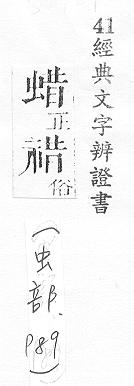 41經典文字辨證書
蜡正䄍俗
(虫部、P89)